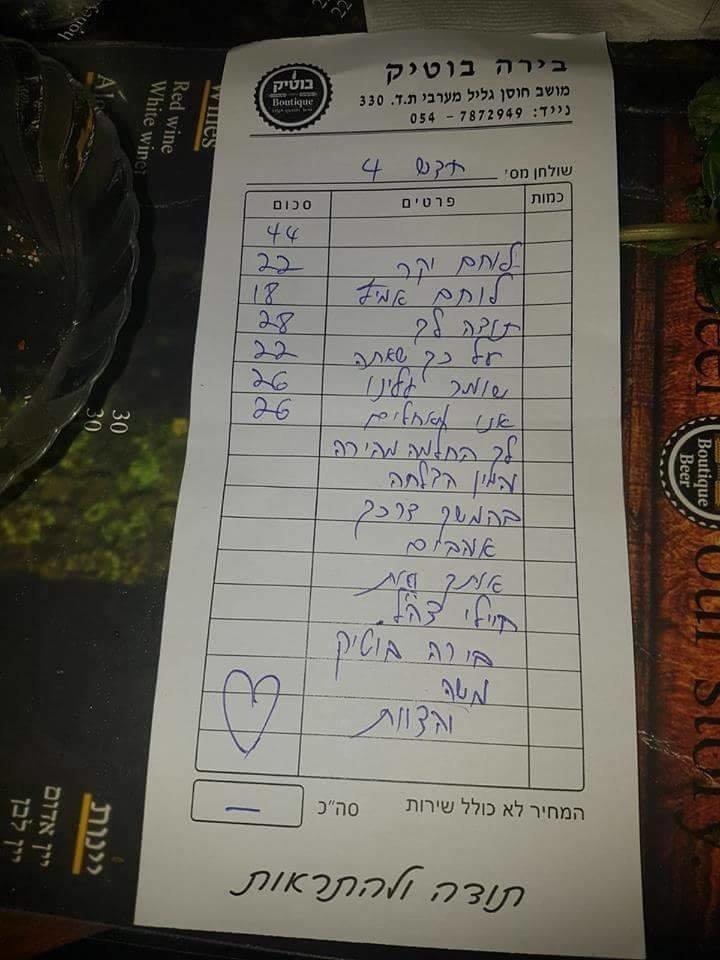 בירה בוטיק
מושב חוסן גליל מערבי ת.ד. 330
נייד: 7872949 - 054
בוטיק
Boutique
שולחן מס׳ חדש 4
כמות פרטים סכום
44
לוחם יקר 22
לוחם אמיץ 18
תודה לך 28
על כך שאתה 22
שומר עלינו 26
אנו מאחלים 26
לך החלמה מהירה
והמון הצלחה
בהמשך דרכך
אוהבים
אותך ואת
חיילי צה״ל.
בירה בוטיק
משה
והצוות
המחיר לא כולל שירות סה״כ —
תודה ולהתראות
honey
Wines
Red wine
White wine
30
30
יינות
יין אדום
יין לבן
Beer
Boutique
Beer
our story